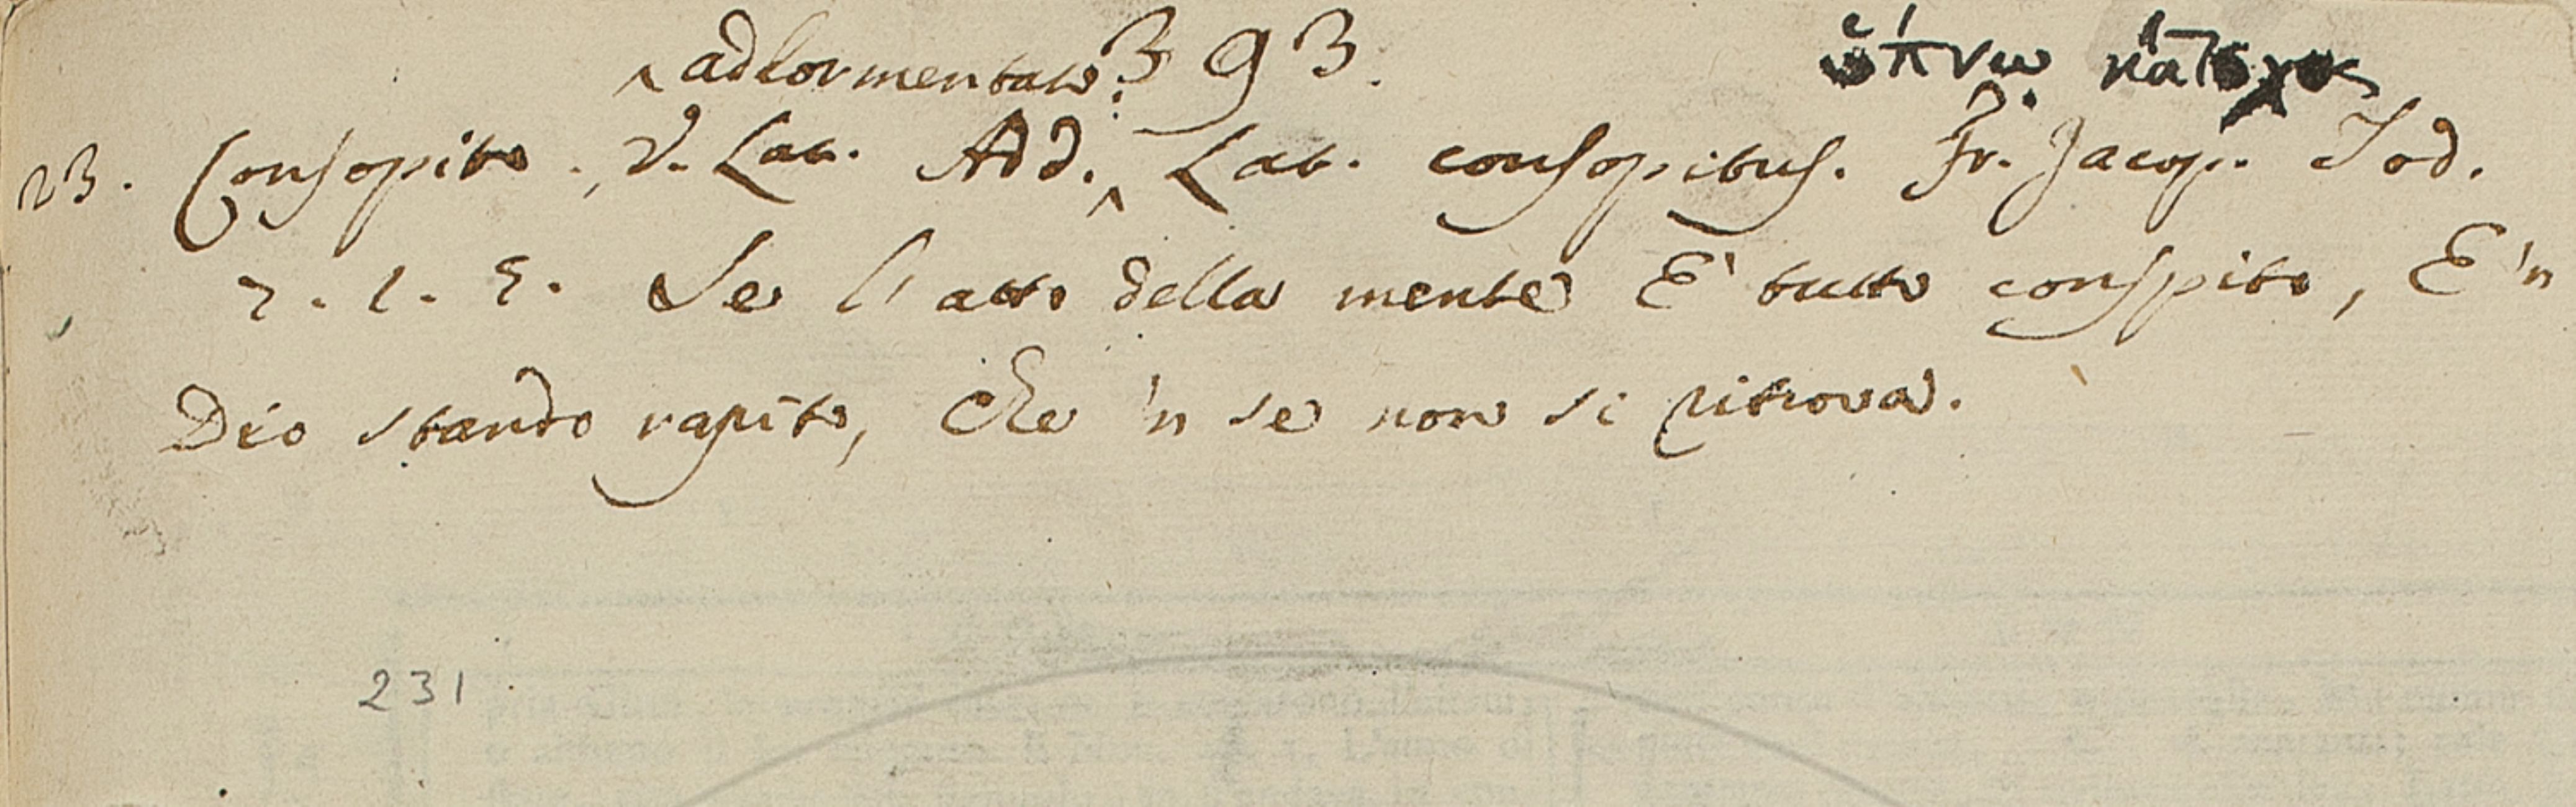 ^ addormentato. 393. ὕπνῳ κάτοχος
23. Consopito. v. Lat. Add. ^ Lat. consopitus. Fr. Jacop. Tod.
7. 1. 5. Se l'atto della mente E' tutto conspito, E 'n
Dio stando rapito, Che 'n se non si ritrova.
231